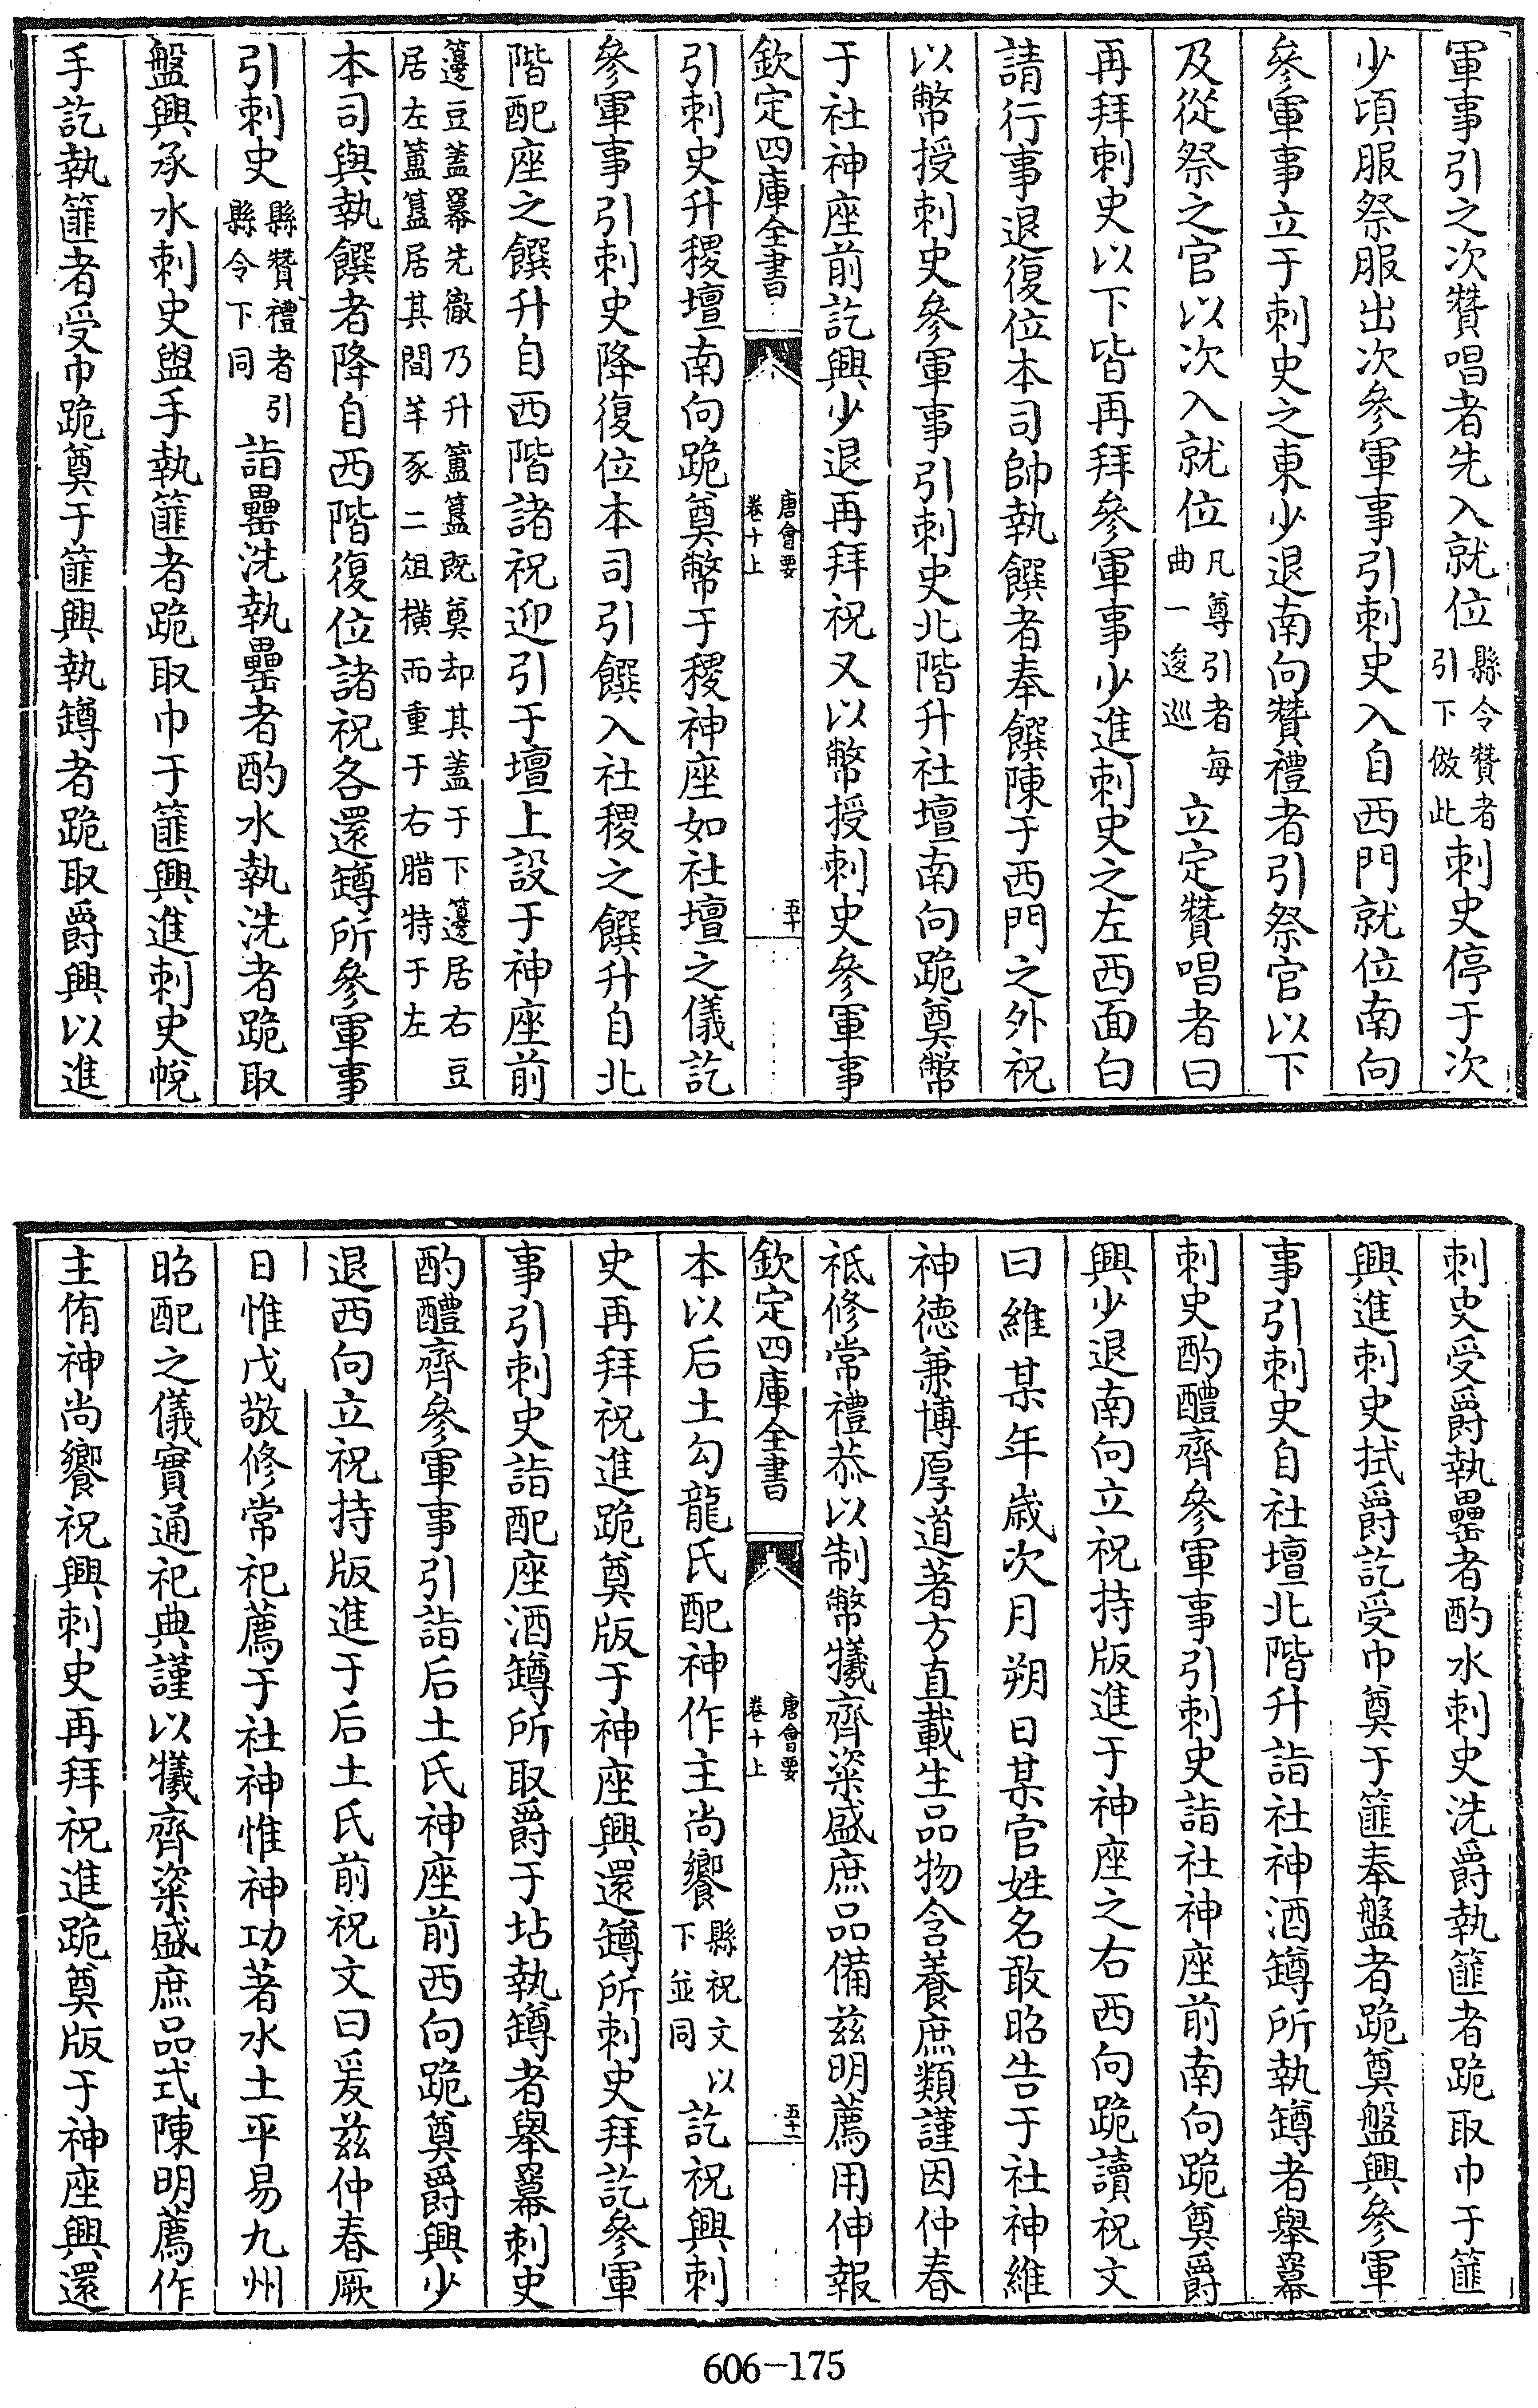 軍事引之次贊唱者先入就位縣令贊者引下倣此刺史停于次
少頃服祭服出次參軍事引刺史入自西門就位南向
參軍事立于刺史之東少退南向贊禮者引祭官以下
及從祭之官以次入就位凡尊引者每曲一逡巡立定贊唱者曰
再拜刺史以下皆再拜參軍事少進刺史之左西面白
請行事退復位本司帥執饌者奉饌陳于西門之外祝
以幣授刺史參軍事引刺史北階升社壇南向跪奠幣
于社神座前訖興少退再拜祝又以幣授刺史參軍事
欽定四庫全書 唐會要卷十上 五十
引刺史升稷壇南向跪奠幣于稷神座如社壇之儀訖
參軍事引刺史降復位本司引饌入社稷之饌升自北
階配座之饌升自西階諸祝迎引于壇上設于神座前
籩豆蓋羃先徹乃升簠簋既奠却其蓋于下籩居右豆居左簠簋居其間羊豕二俎橫而重于右腊特于左
本司與執饌者降自西階復位諸祝各還罇所參軍事
引刺史縣贊禮者引縣令下同詣罍洗執罍者酌水執洗者跪取
盤興承水刺史盥手執篚者跪取巾于篚興進刺史帨
手訖執篚者受巾跪奠于篚興執罇者跪取爵興以進
刺史受爵執罍者酌水刺史洗爵執篚者跪取巾于篚
興進刺史拭爵訖受巾奠于篚奉盤者跪奠盤興參軍
事引刺史自社壇北階升詣社神酒罇所執罇者舉羃
刺史酌醴齊參軍事引刺史詣社神座前南向跪奠爵
興少退南向立祝持版進于神座之右西向跪讀祝文
曰維某年歲次月朔日某官姓名敢昭告于社神維
神德兼博厚道著方直載生品物含養庶類謹因仲春
祗修常禮恭以制幣犧齊粢盛庶品備茲明薦用伸報
欽定四庫全書 唐會要卷十上 五十一
本以后土勾龍氏配神作主尚饗縣祝文以下並同訖祝興刺
史再拜祝進跪奠版于神座興還罇所刺史拜訖參軍
事引刺史詣配座酒罇所取爵于坫執罇者舉羃刺史
酌醴齊參軍事引詣后土氏神座前西向跪奠爵興少
退西向立祝持版進于后土氏前祝文曰爰茲仲春厥
日惟戊敬修常祀薦于社神惟神功著水土平易九州
昭配之儀實通祀典謹以犧齊粢盛庶品式陳明薦作
主侑神尚饗祝興刺史再拜祝進跪奠版于神座興還
606-175